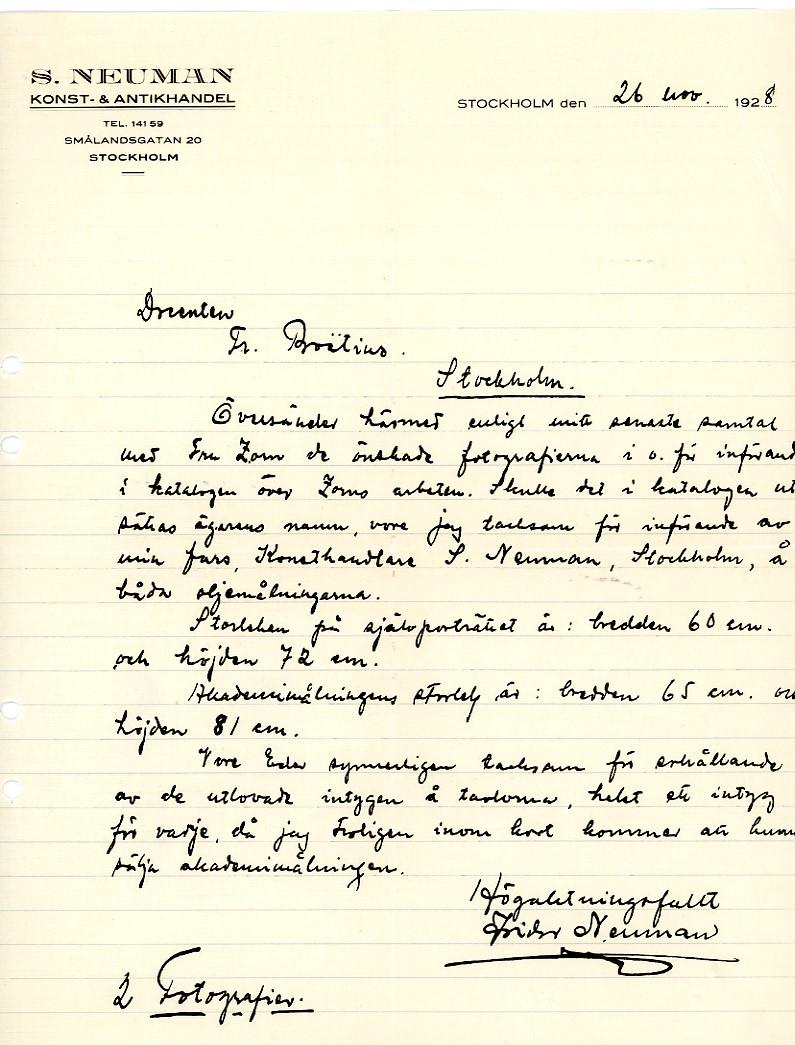 S. NEUMAN
KONST- & ANTIKHANDEL
TEL. 141 59
SMÅLANDSGATAN 20
STOCKHOLM
STOCKHOLM den 26 nov. 1928
Docenten
Fr. Boëtius.
Stockholm.
Översänder härmed enligt mitt senaste samtal
med Fru Zorn de önskade fotografierna i o. för införand
i katalogen över Zorns arbeten. Skulle det i katalogen ut
sättas ägarens namn, vore jag tacksam för införande av
min fars, Konsthandlare S. Neuman, Stockholm, å
båda oljemålningarna.
Storleken på självporträttet är: bredden 60 cm.
och höjden 72 cm.
Akademimålningens storlek är: bredden 65 cm. oc
höjden 81 cm.
Vore Eder synnerligen tacksam för erhållande
av de utlovade intygen å tavlorna, helst ett intyg
för varje, då jag troligen inom kort kommer att kunn
sälja akademimålningen.
Högaktningsfullt
Neuman
2 Fotografier.